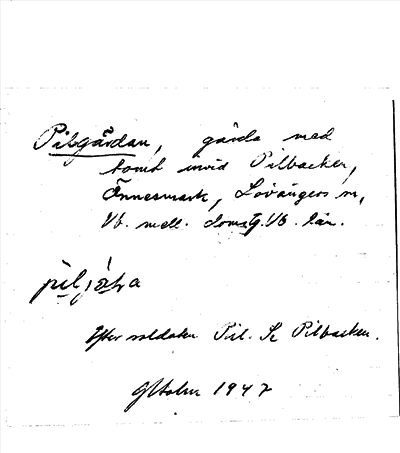 Pilsgärdan, gärda med
tomt invid Pilbacken,
Ånnesmark, Lövångers sn,
Vb. mell. doms. Vb. län.
Efter soldaten Pil. Se Pilbacken.
GHolm 1947